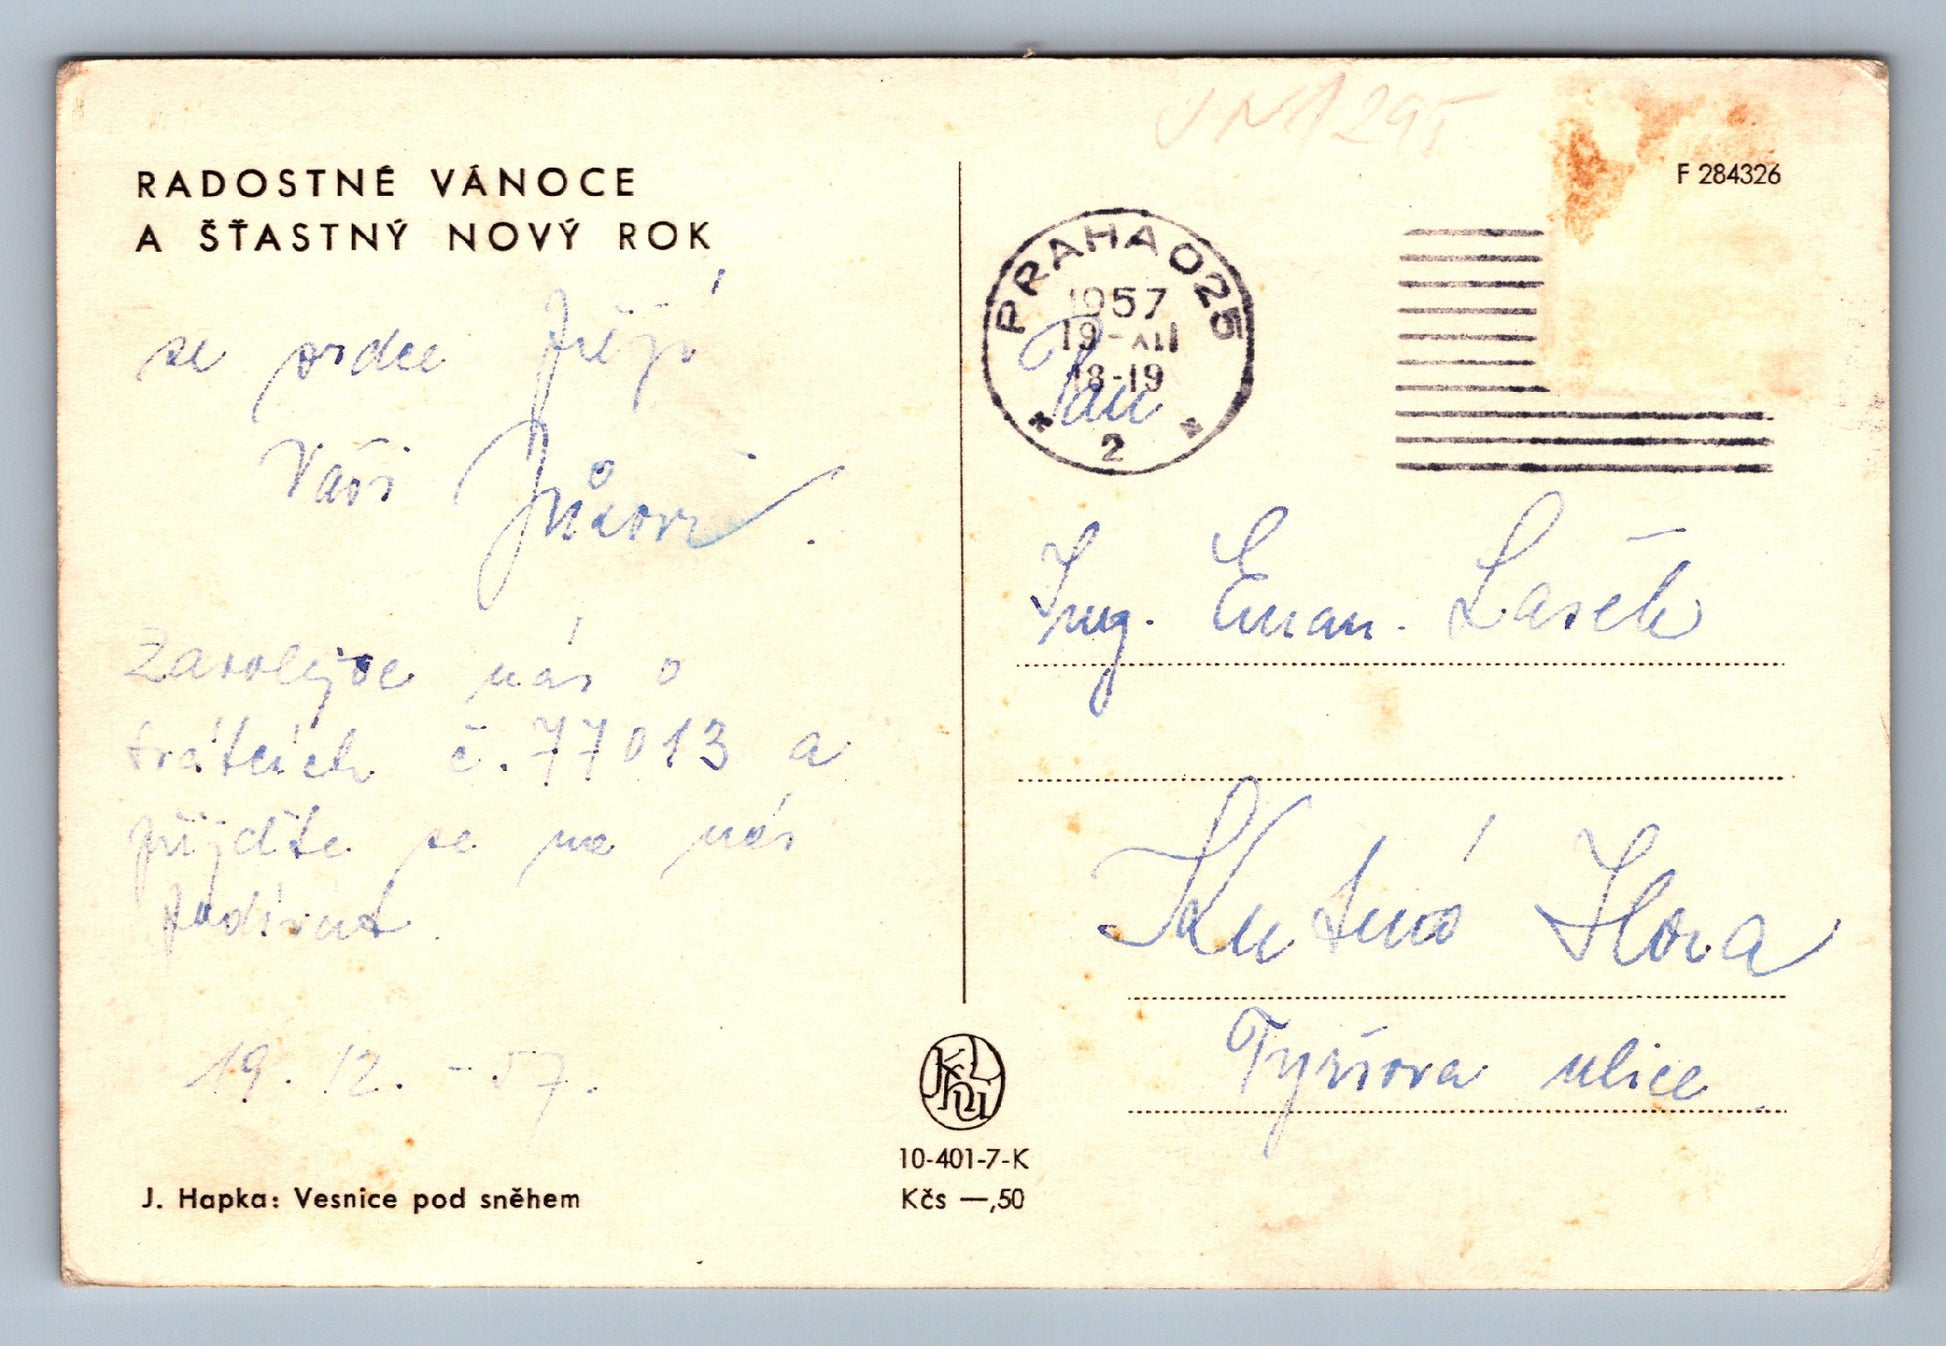 RADOSTNÉ VÁNOCE
A ŠŤASTNÝ NOVÝ ROK
ze srdce přejí
Vaši
Zavolejte nás o
svátcích č. 77013 a
přijďte se na nás
podívat.
19. 12. - 57.
J. Hapka: Vesnice pod sněhem
10-401-7-K
Kčs —,50
F 284326
PRAHA 025
1957
19-XII
18-19
2
Pan
Ing. Eman. Lasék
Kutná Hora
Tyršova ulice